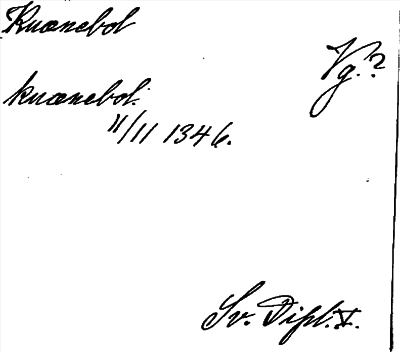 Knænebol
Vg.?
knænebol.
11/11 1346.
Sv. Dipl. V.